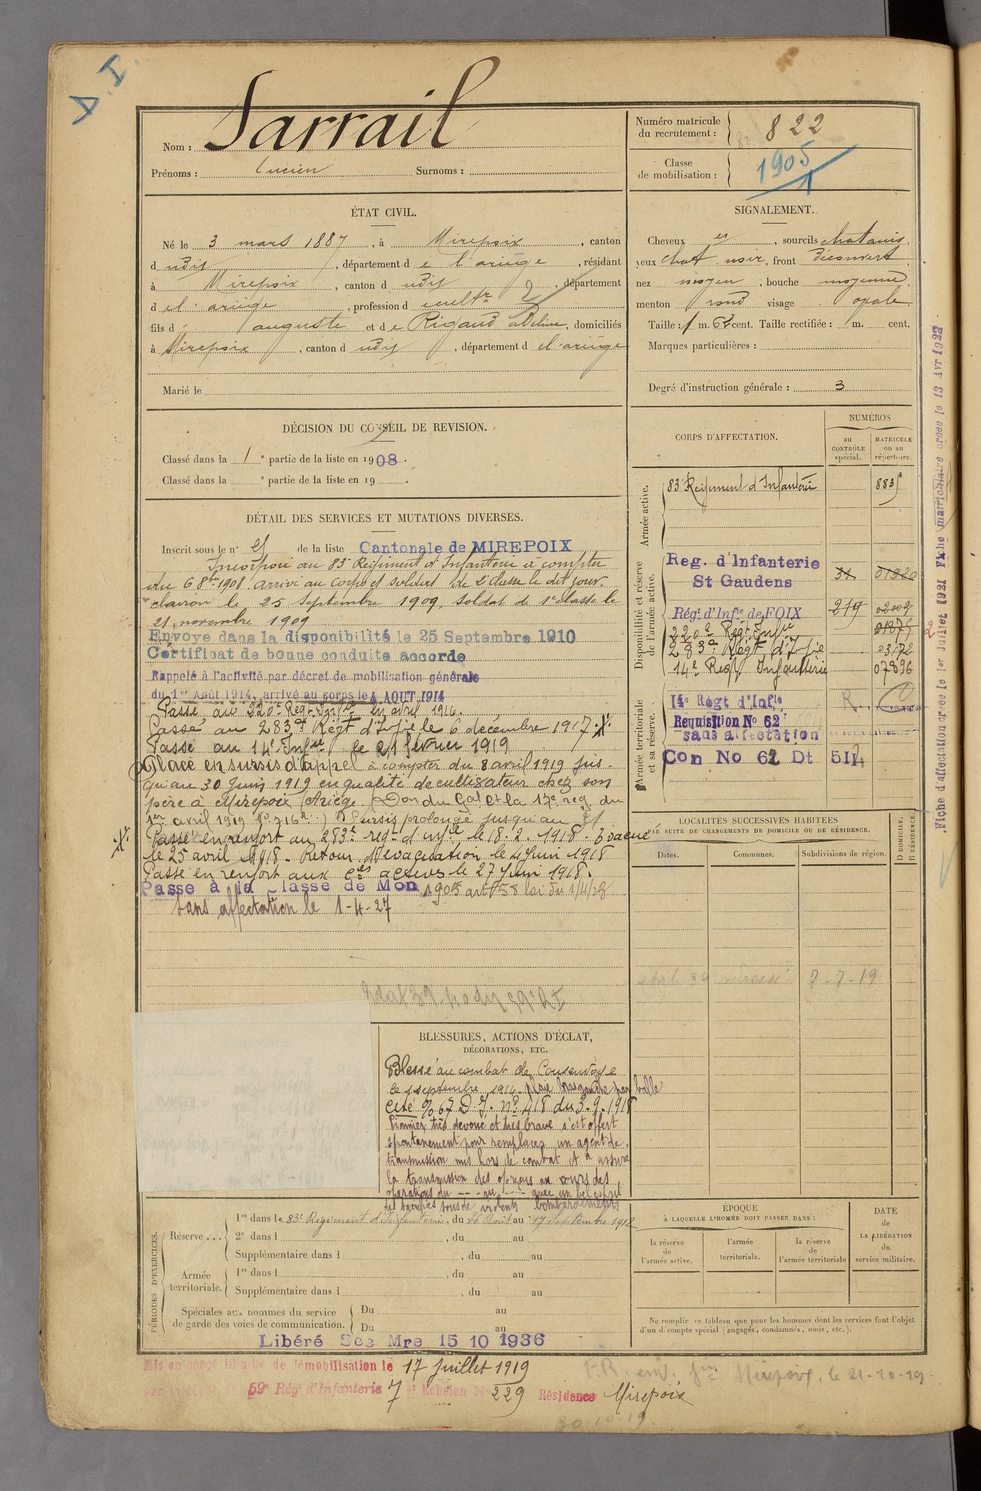 Nom : Sarrail
Prénoms : Lucien Surnoms :
Numéro matricule du recrutement : 822
Classe de mobilisation : 1905
ÉTAT CIVIL.
Né le 3 mars 1887, à Mirepoix, canton
d udit, département de l'ariège, résidant
à Mirepoix, canton d udit, département
d el'ariège, profession d
fils d' auguste et de Rigaud Adeline, domiciliés
à Mirepoix, canton d udit, département d el'ariège
Marié le
SIGNALEMENT.
Cheveux , sourcils chatains,
yeux chat. noir, front découvert
nez moyen, bouche moyenne
menton rond visage ovale
Taille : 1 m. cent. Taille rectifiée : m. cent.
Marques particulières :
Degré d'instruction générale : 3
DÉCISION DU CONSEIL DE REVISION.
Classé dans la 1e partie de la liste en 1908.
Classé dans la e partie de la liste en 19 .
CORPS D'AFFECTATION.
NUMÉROS
au CONTRÔLE spécial.
MATRICULE ou au répertoire.
Armée active.
83e Régiment d'Infanterie 8835
Disponibilité et réserve de l'armée active.
Reg. d'Infanterie
St Gaudens 31 01320
Régt d'Infie de FOIX 219 02009
220e Régt Infie 01875
283e Régt d'Infie 03172
14e Régt Infanterie 07896
Armée territoriale et sa réserve.
14e Régt d'Infie
Requisition No 62
sans affectation
Con No 62 Dt 511
DÉTAIL DES SERVICES ET MUTATIONS DIVERSES.
Inscrit sous le n° 21 de la liste Cantonale de MIREPOIX
Incorporé au 83e Régiment d'Infanterie à compter
du 6 8bre 1908. arrivé au corps et soldat de 2e classe le dit jour.
clairon le 25 Septembre 1909, soldat de 1e classe le
21 novembre 1909
Envoyé dans la disponibilité le 25 Septembre 1910
Certificat de bonne conduite accordé
Rappelé à l'activité par décret de mobilisation générale
du 1er Août 1914, arrivé au corps le 4 AOUT 1914
Passé au 220e Régt Infie en avril 1916.
Passé au 283e Régt d'Infie le 6 décembre 1917.
Passé au 14e Infie le 21 février 1919
Placé en sursis d'appel à compter du 8 avril 1919 jus-
qu'au 30 Juin 1919 en qualité de cultivateur chez son
père à Mirepoix (Ariège. (Don du Gal Ct la 17e reg. du
1er avril 1919 No 716 ) Sursis prolongé jusqu'au
Passé en renfort au 283e reg. d'infie le 18.2.1918. Evacué
le 25 avril 1918. Retour d'évacuation le 4 Juin 1918
Passé en renfort aux cies actives le 27 Juin 1918.
Passé à la Classe de Mon 1905 art 58 loi du 1/4/23
Sans affectation le 1-4-27
LOCALITÉS SUCCESSIVES HABITÉES
PAR SUITE DE CHANGEMENTS DE DOMICILE OU DE RÉSIDENCE.
Dates. Communes. Subdivisions de région. D DOMICILE. R RÉSIDENCE.
état 39 adressé 7-7-19
BLESSURES, ACTIONS D'ÉCLAT,
DÉCORATIONS, ETC.
Blessé au combat de Consenvoye
le 1 septembre 1914. plaie par balle
Cité % 67 D.I. no 418 du 3.9.1918
Pionnier très dévoué et très brave s'est offert
spontanément pour remplacer un agent de
transmission mis hors de combat et a assuré
la transmission des ordres au cours des
opérations du au avec un bel esprit
de sacrifice sous de violents bombardements
PÉRIODES D'EXERCICES.
Réserve ... 1re dans le 83e Régiment d'Infanterie, du 26 Août au 17 septembre 1912
2e dans l , du au
Supplémentaire dans l , du au
Armée territoriale. 1re dans l , du au
Supplémentaire dans l , du au
Spéciales aux nommes du service de garde des voies de communication. Du au
Du au
Libéré Sce Mre 15 10 1936
ÉPOQUE
À LAQUELLE L'HOMME DOIT PASSER DANS :
la réserve de l'armée active.
l'armée territoriale.
la réserve de l'armée territoriale
DATE de LA LIBÉRATION du service militaire.
Ne remplir ce tableau que pour les hommes dont les services font l'objet
d'un décompte spécial (engagés, condamnés, omis, etc.).
Mis en congé illimité de démobilisation le 17 Juillet 1919
59e Rég. d'Infanterie 7e Echelon No 229 Résidence Mirepoix
F.R. env. Mirepoix, le 21-10-19
30-10-19.
Fiche d'affectation créée le 1er Juillet 1921 Fiche matriculaire créée le 13 Avr 1923